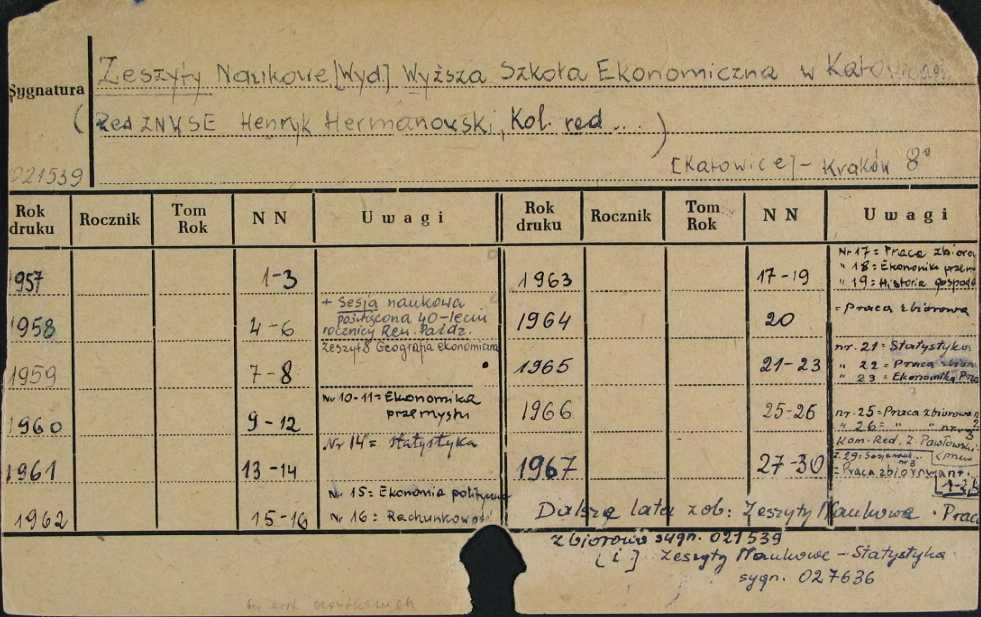 Zeszyty Naukowe [Wyd] Wyższa Szkoła Ekonomiczna w Katowicach
Sygnatura
( Red ZNWSE Henryk Hermanowski, Kol. red ... )
[Katowice] - Kraków 8°
021539
Rok druku Rocznik Tom Rok NN Uwagi Rok druku Rocznik Tom Rok NN Uwagi
1957 1-3
1958 4-6 + Sesja naukowa
poświęcona 40-leciu
rocznicy Rew. Paźdz.
1959 7-8 Zeszyt 8 Geografia Ekonomiczna
1960 9-12 Nr 10-11 = Ekonomika
przemysłu
1961 13-14 Nr 14 = statystyka
1962 15-16 Nr 15 = Ekonomia polityczna
Nr 16 = Rachunkowość
1963 17-19 Nr 17 = Praca zbioro
" 18 = Ekonomika przem
" 19 = Historia gospod
1964 20 = Praca zbiorowa
1965 21-23 nr. 21 = Statystyka
" 22 = Praca zbior
" 23 = Ekonomika Prac
1966 25-26 nr. 25 = Praca zbiorowa n 2
" 26 = " " nr. 3
Kom. Red. Z. Pawłowski
1967 27-30 z. 29:
nr 3
= Praca zbiorowa nr.
1-2,
Dalsze lata zob: Zeszyty Naukowe · Praca
zbiorowa sygn. 021539
[i] Zeszyty Naukowe - Statystyka
sygn. 027636